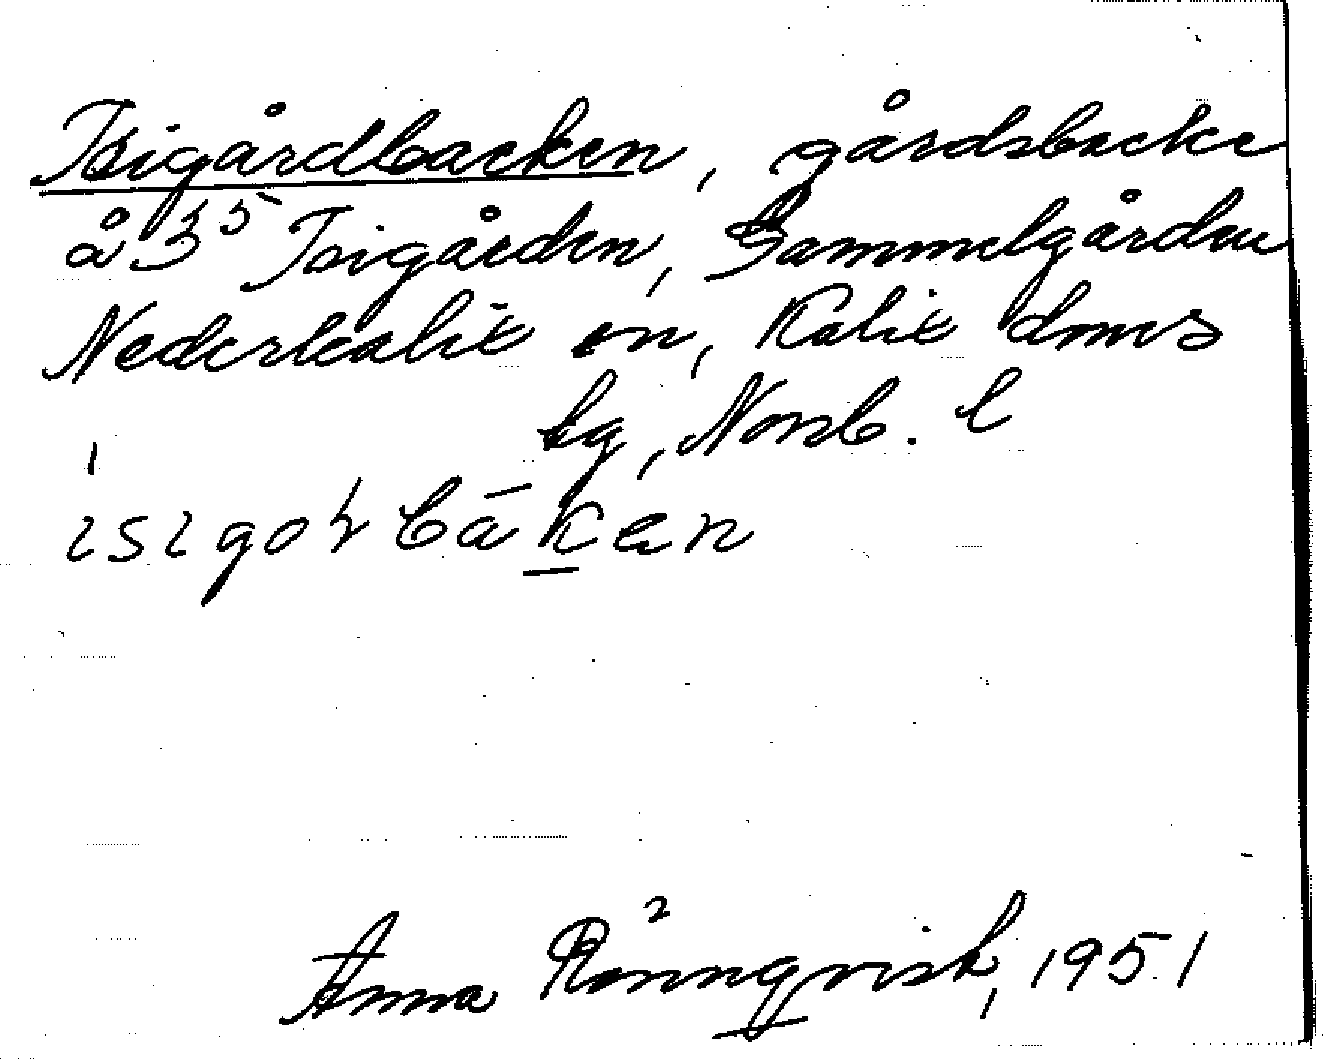 Isigårdbacken, gårdsbacke
å 3⁵ Isigården, Gammelgården
Nederkalix sn, Kalix doms
sg, Norrb. l
ısıgoɦbāken
Anna Rönnqvist, 1951